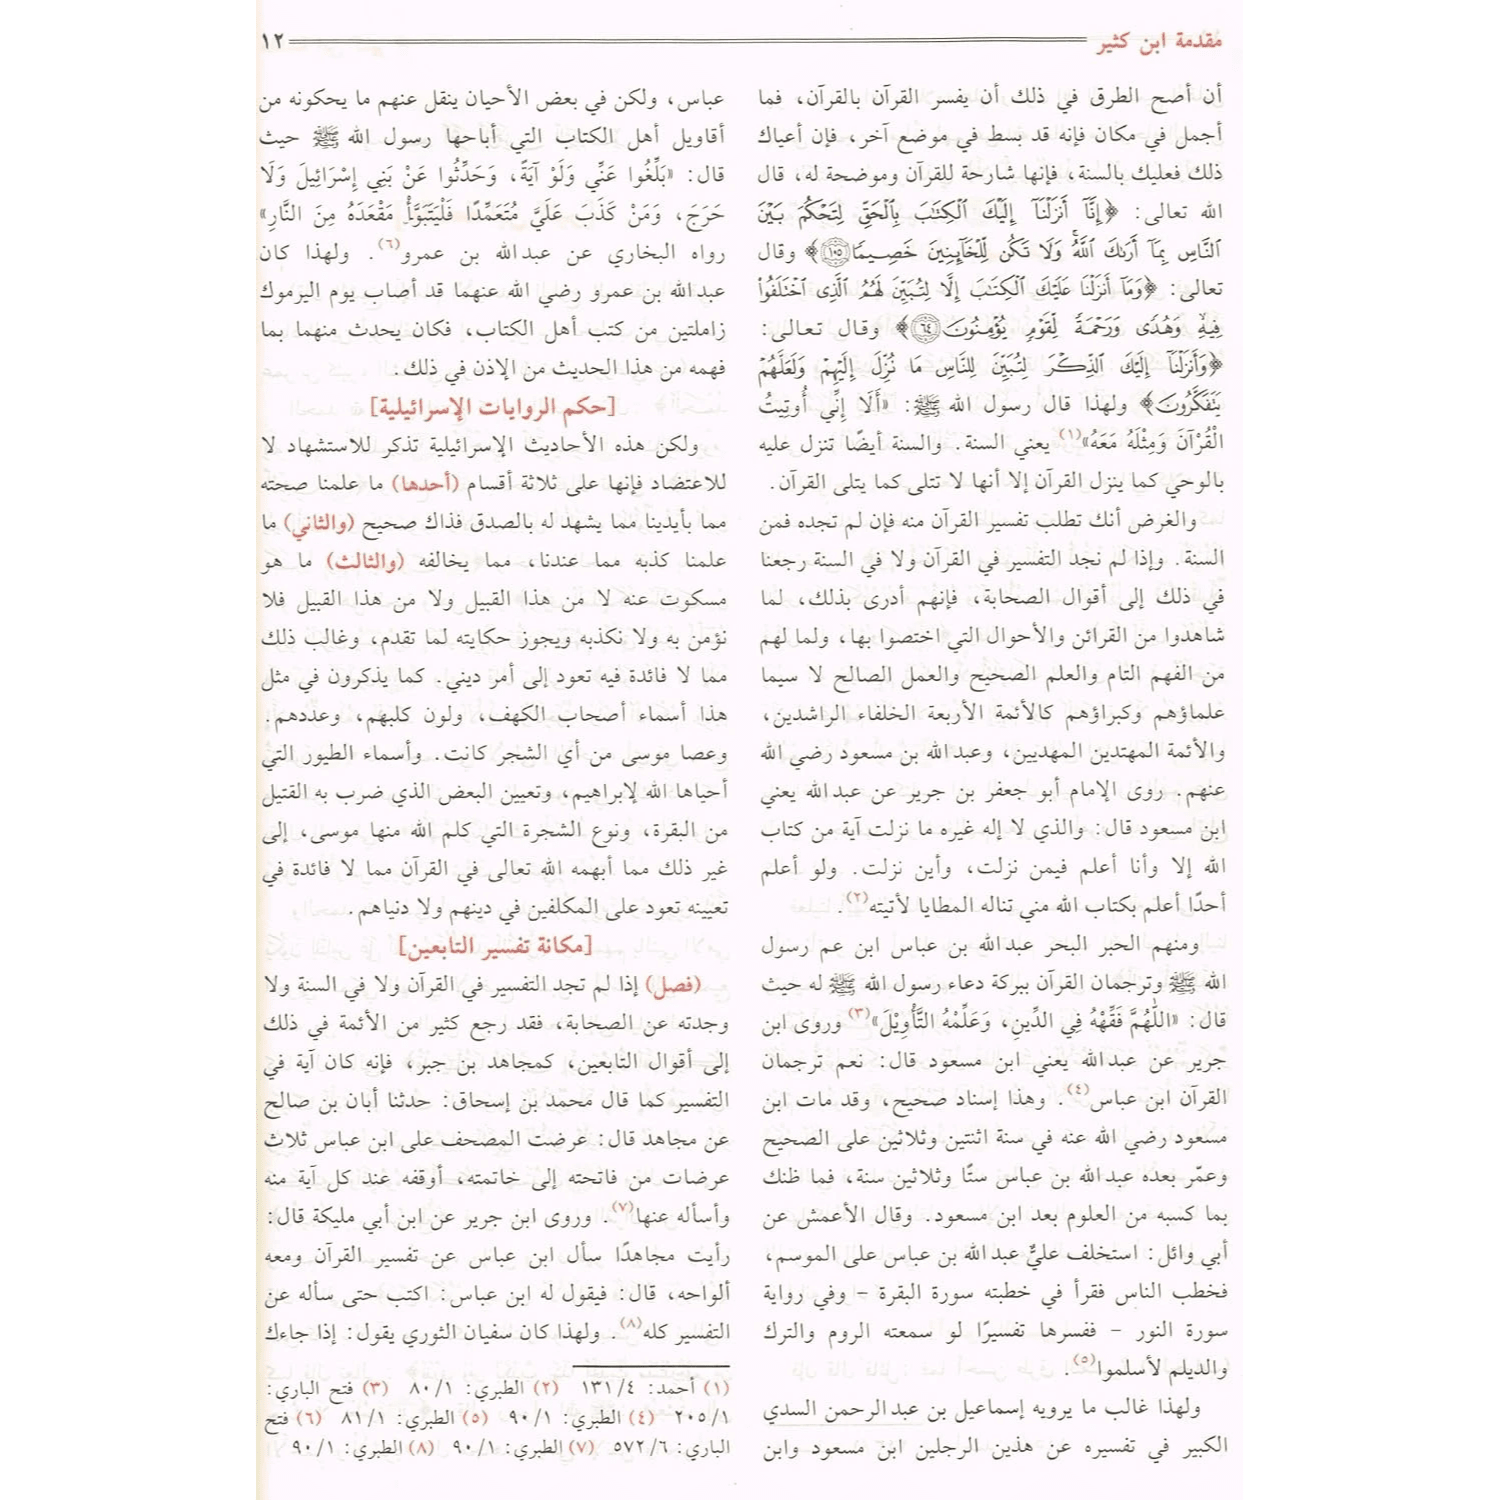 مقدمة ابن كثير
١٢
أن أصح الطرق في ذلك أن يفسر القرآن بالقرآن، فما
أجمل في مكان فإنه قد بسط في موضع آخر، فإن أعياك
ذلك فعليك بالسنة، فإنها شارحة للقرآن وموضحة له، قال
الله تعالى: ﴿إِنَّآ أَنزَلْنَآ إِلَيْكَ ٱلْكِتَـٰبَ بِٱلْحَقِّ لِتَحْكُمَ بَيْنَ
ٱلنَّاسِ بِمَآ أَرَىٰكَ ٱللَّهُ ۚ وَلَا تَكُن لِّلْخَآئِنِينَ خَصِيمًا ١٠٥﴾ وقال
تعالى: ﴿وَمَآ أَنزَلْنَا عَلَيْكَ ٱلْكِتَـٰبَ إِلَّا لِتُبَيِّنَ لَهُمُ ٱلَّذِى ٱخْتَلَفُوا۟
فِيهِ ۙ وَهُدًى وَرَحْمَةً لِّقَوْمٍ يُؤْمِنُونَ ٦٤﴾ وقال تعالى:
﴿وَأَنزَلْنَآ إِلَيْكَ ٱلذِّكْرَ لِتُبَيِّنَ لِلنَّاسِ مَا نُزِّلَ إِلَيْهِمْ وَلَعَلَّهُمْ
يَتَفَكَّرُونَ﴾ ولهذا قال رسول الله ﷺ: «أَلَا إِنِّي أُوتِيتُ
الْقُرْآنَ وَمِثْلَهُ مَعَهُ»(١) يعني السنة. والسنة أيضًا تنزل عليه
بالوحي كما ينزل القرآن إلا أنها لا تتلى كما يتلى القرآن.
والغرض أنك تطلب تفسير القرآن منه فإن لم تجده فمن
السنة. وإذا لم نجد التفسير في القرآن ولا في السنة رجعنا
في ذلك إلى أقوال الصحابة، فإنهم أدرى بذلك، لما
شاهدوا من القرائن والأحوال التي اختصوا بها، ولما لهم
من الفهم التام والعلم الصحيح والعمل الصالح لا سيما
علماؤهم وكبراؤهم كالأئمة الأربعة الخلفاء الراشدين،
والأئمة المهتدين المهديين، وعبدالله بن مسعود رضي الله
عنهم. روى الإمام أبو جعفر بن جرير عن عبدالله يعني
ابن مسعود قال: والذي لا إله غيره ما نزلت آية من كتاب
الله إلا وأنا أعلم فيمن نزلت، وأين نزلت. ولو أعلم
أحدًا أعلم بكتاب الله مني تناله المطايا لأتيته(٢).
ومنهم الحبر البحر عبدالله بن عباس ابن عم رسول
الله ﷺ وترجمان القرآن ببركة دعاء رسول الله ﷺ له حيث
قال: «اللَّهُمَّ فَقِّهْهُ فِي الدِّينِ، وَعَلِّمْهُ التَّأْوِيْلَ»(٣) وروى ابن
جرير عن عبدالله يعني ابن مسعود قال: نعم ترجمان
القرآن ابن عباس(٤). وهذا إسناد صحيح، وقد مات ابن
مسعود رضي الله عنه في سنة اثنتين وثلاثين على الصحيح
وعمّر بعده عبدالله بن عباس ستًا وثلاثين سنة، فما ظنك
بما كسبه من العلوم بعد ابن مسعود. وقال الأعمش عن
أبي وائل: استخلف عليٌّ عبدالله بن عباس على الموسم،
فخطب الناس فقرأ في خطبته سورة البقرة - وفي رواية
سورة النور - ففسرها تفسيرًا لو سمعته الروم والترك
والديلم لأسلموا(٥).
ولهذا غالب ما يرويه إسماعيل بن عبدالرحمن السدي
الكبير في تفسيره عن هذين الرجلين ابن مسعود وابن
عباس، ولكن في بعض الأحيان ينقل عنهم ما يحكونه من
أقاويل أهل الكتاب التي أباحها رسول الله ﷺ حيث
قال: «بَلِّغُوا عَنِّي وَلَوْ آيَةً، وَحَدِّثُوا عَنْ بَنِي إِسْرَائِيلَ وَلَا
حَرَجَ، وَمَنْ كَذَبَ عَلَيَّ مُتَعَمِّدًا فَلْيَتَبَوَّأْ مَقْعَدَهُ مِنَ النَّارِ»
رواه البخاري عن عبدالله بن عمرو(٦). ولهذا كان
عبدالله بن عمرو رضي الله عنهما قد أصاب يوم اليرموك
زاملتين من كتب أهل الكتاب، فكان يحدث منهما بما
فهمه من هذا الحديث من الإذن في ذلك.
[حكم الروايات الإسرائيلية]
ولكن هذه الأحاديث الإسرائيلية تذكر للاستشهاد لا
للاعتضاد فإنها على ثلاثة أقسام (أحدها) ما علمنا صحته
مما بأيدينا مما يشهد له بالصدق فذاك صحيح (والثاني) ما
علمنا كذبه مما عندنا، مما يخالفه (والثالث) ما هو
مسكوت عنه لا من هذا القبيل ولا من هذا القبيل فلا
نؤمن به ولا نكذبه ويجوز حكايته لما تقدم، وغالب ذلك
مما لا فائدة فيه تعود إلى أمر ديني. كما يذكرون في مثل
هذا أسماء أصحاب الكهف، ولون كلبهم، وعددهم.
وعصا موسى من أي الشجر كانت. وأسماء الطيور التي
أحياها الله لإبراهيم، وتعيين البعض الذي ضرب به القتيل
من البقرة، ونوع الشجرة التي كلم الله منها موسى، إلى
غير ذلك مما أبهمه الله تعالى في القرآن مما لا فائدة في
تعيينه تعود على المكلفين في دينهم ولا دنياهم.
[مكانة تفسير التابعين]
(فصل) إذا لم تجد التفسير في القرآن ولا في السنة ولا
وجدته عن الصحابة، فقد رجع كثير من الأئمة في ذلك
إلى أقوال التابعين، كمجاهد بن جبر، فإنه كان آية في
التفسير كما قال محمد بن إسحاق: حدثنا أبان بن صالح
عن مجاهد قال: عرضت المصحف على ابن عباس ثلاث
عرضات من فاتحته إلى خاتمته، أوقفه عند كل آية منه
وأسأله عنها(٧). وروى ابن جرير عن ابن أبي مليكة قال:
رأيت مجاهدًا سأل ابن عباس عن تفسير القرآن ومعه
ألواحه، قال: فيقول له ابن عباس: اكتب حتى سأله عن
التفسير كله(٨). ولهذا كان سفيان الثوري يقول: إذا جاءك
(١) أحمد: ١٣١/٤ (٢) الطبري: ٨٠/١ (٣) فتح الباري:
٢٠٥/١ (٤) الطبري: ٩٠/١ (٥) الطبري: ٨١/١ (٦) فتح
الباري: ٥٧٢/٦ (٧) الطبري: ٩٠/١ (٨) الطبري: ٩٠/١